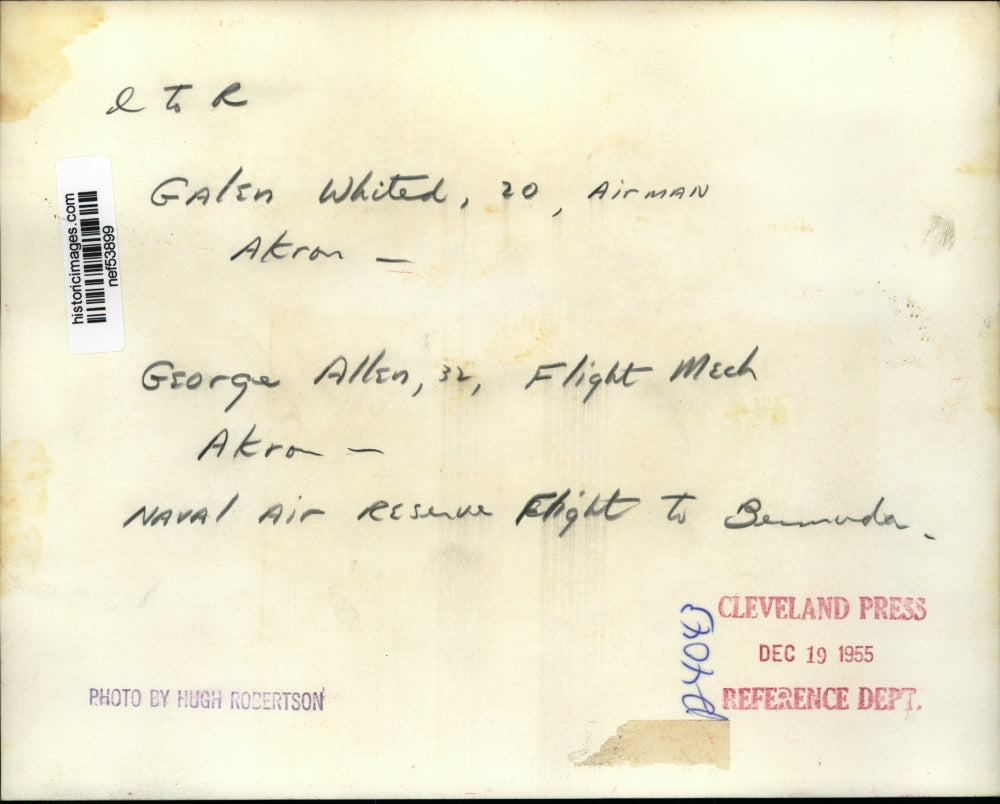 L to R
Galen Whited, 20, Airman
Akron —
George Allen, 32, Flight Mech
Akron —
Naval Air Reserve Flight to Bermuda.
historicimages.com
nef53899
CLEVELAND PRESS
DEC 19 1955
REFERENCE DEPT.
PHOTO BY HUGH ROBERTSON